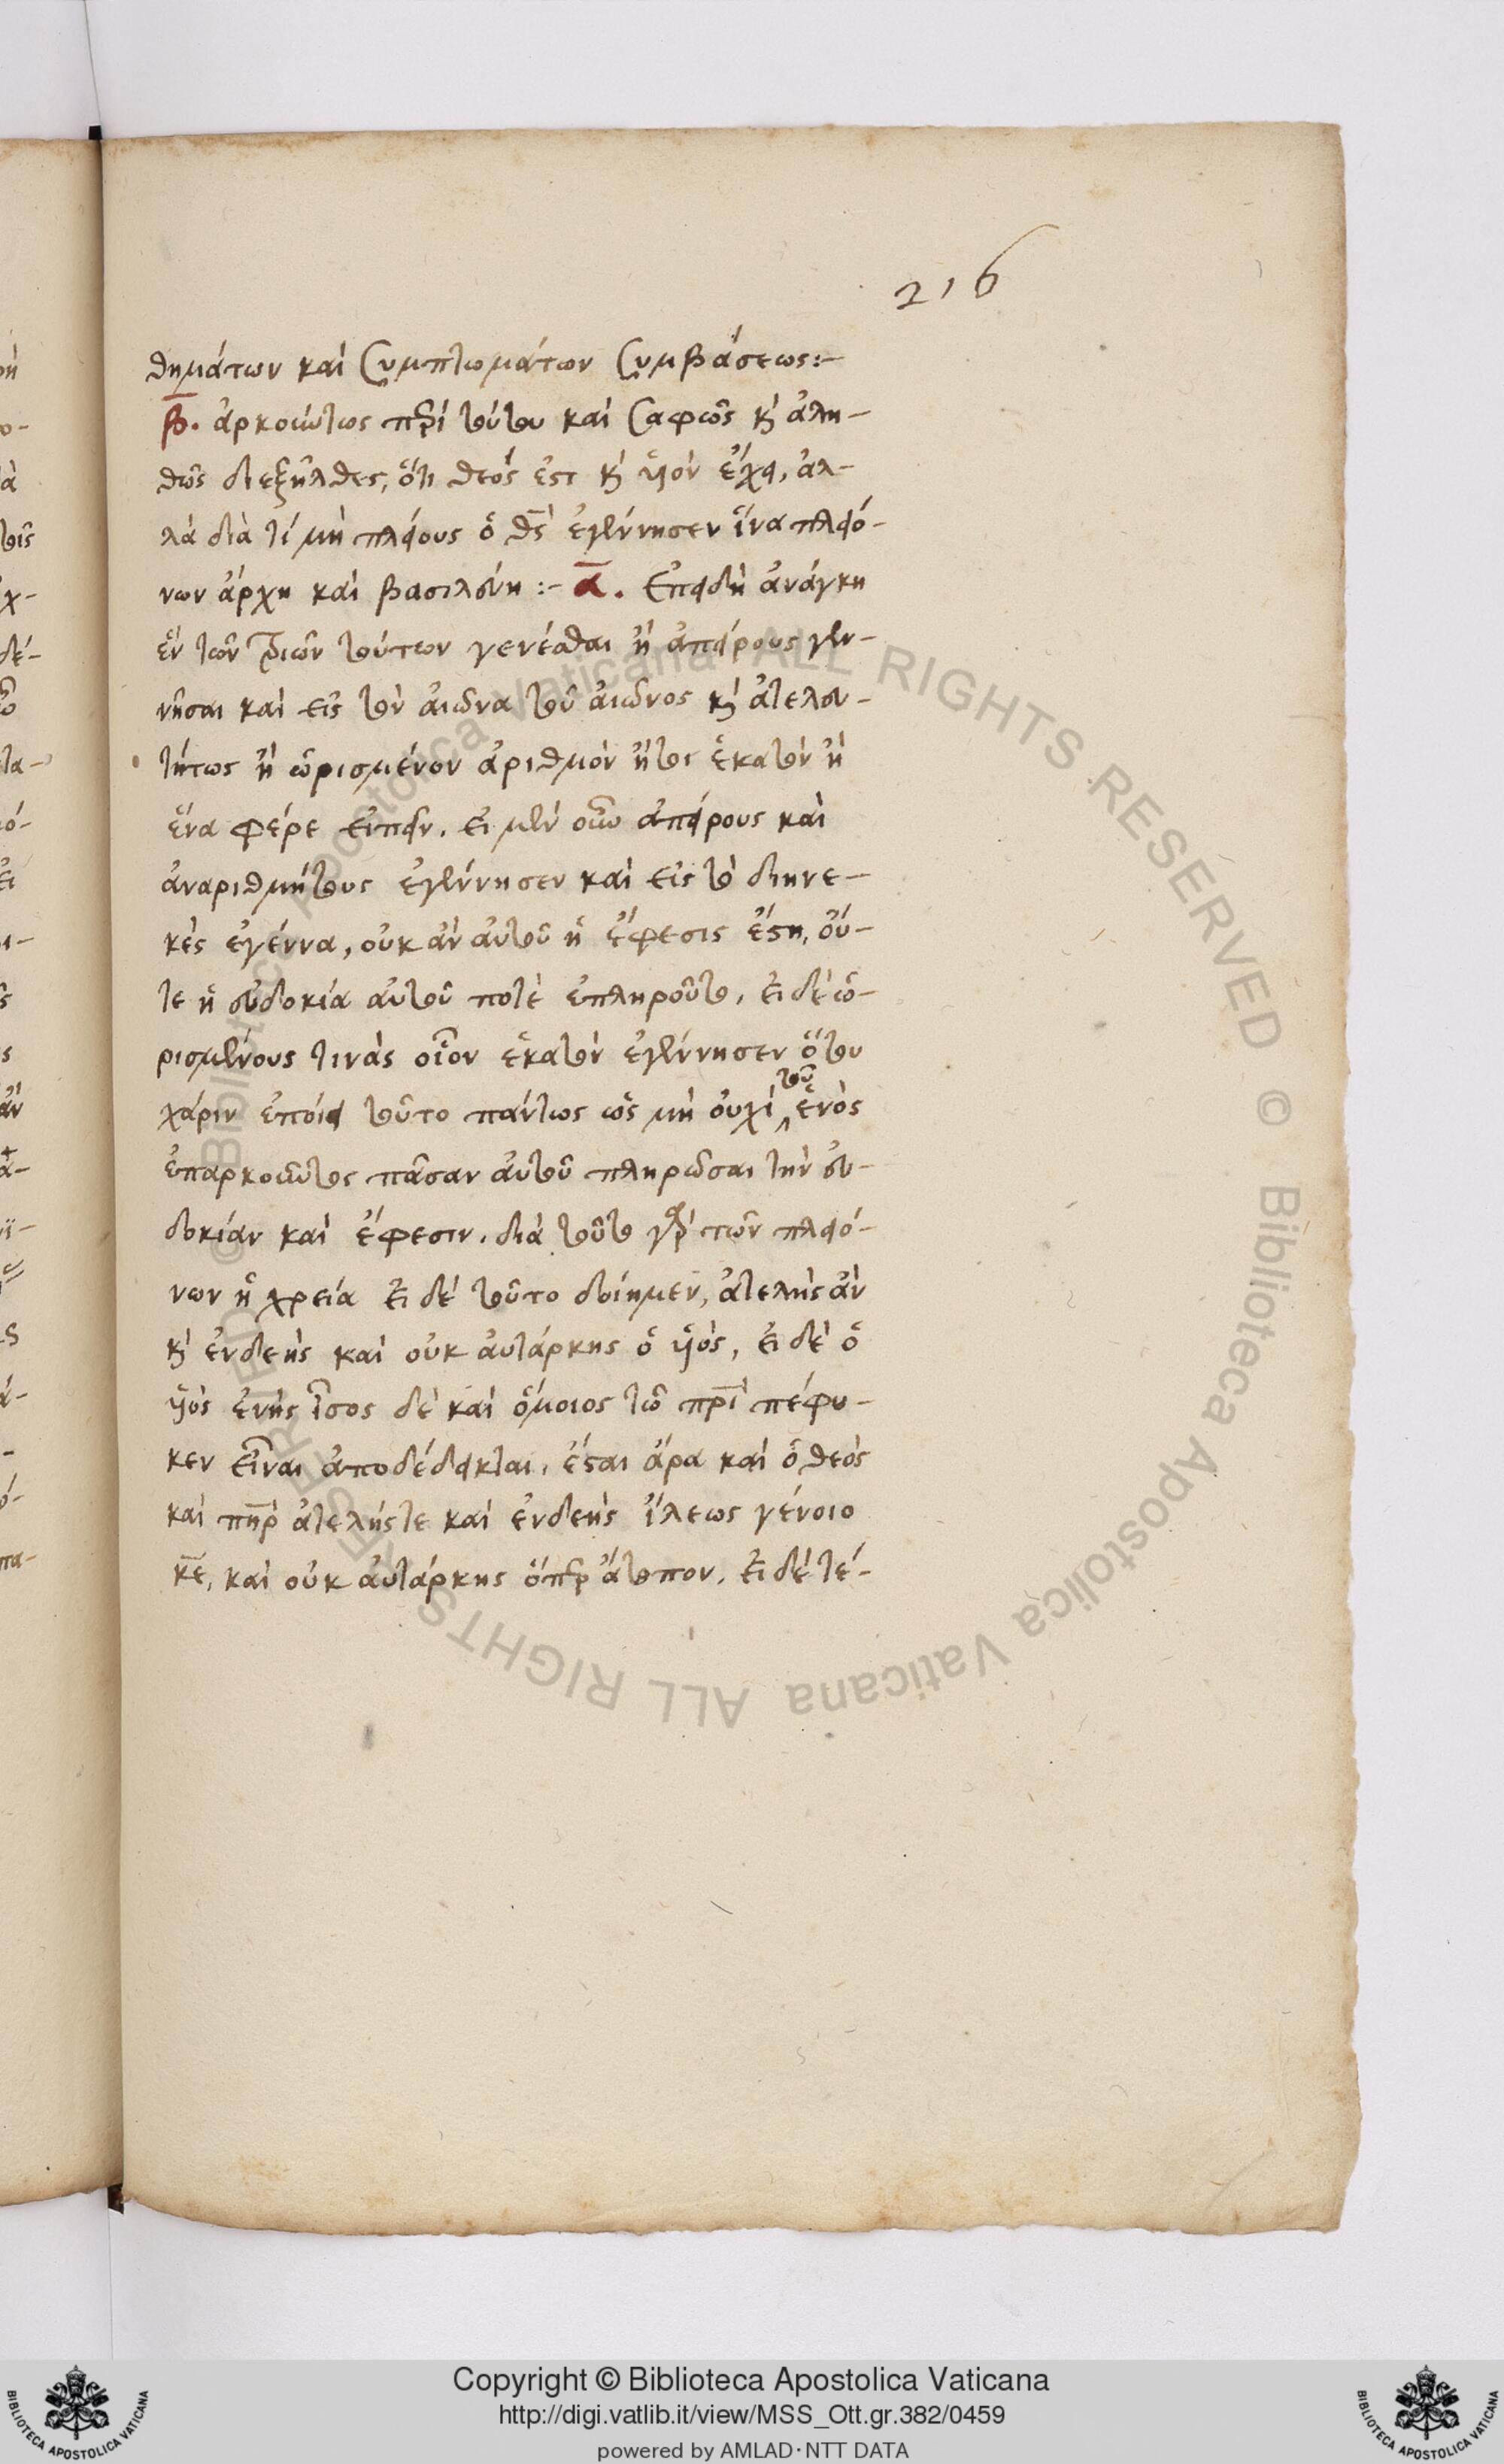 216
θημάτων καὶ συμπτωμάτων συμβάσεως:–
β. ἀρκούντως περὶ τούτου καὶ σαφῶς κ̀ ἀλη–
θῶς διεξῆλθες, ὅτι θεός ἐστ κ̀ υἱὸν ἔχει, ἀλ–
λὰ διὰ τί μὴ πλείους ὁ θς ἐγέννησεν ἵνα πλειό–
νων ἄρχη καὶ βασιλεύη :– α. Ἐπειδὴ ἀνάγκη
ἓν τῶν τριῶν τούτων γενέσθαι ἢ ἀπείρους γεν–
νῆσαι καὶ εἰς τὸν αἰῶνα τοῦ αἰῶνος κ̀ ἀτελευ–
τήτως ἢ ὡρισμένον ἀριθμὸν ἤτοι ἑκατὸν ἢ
ἕνα φέρε εἰπεῖν. εἰ μὲν οὖν ἀπείρους καὶ
ἀναριθμήτους ἐγέννησεν καὶ εἰς τὸ διηνε–
κὲς ἐγέννα, οὐκ ἂν αὐτοῦ ἡ ἔφεσις ἔστη, οὔ–
τε ἡ εὐδοκία αὐτοῦ ποτὲ ἐπληροῦτο, εἰ δὲ ὡ–
ρισμένους τινὰς οἷον ἑκατὸν ἐγέννησεν ὅτου
χάριν ἐποίει τοῦτο πάντως ὡς μὴ οὐχὶ τοῦ ἑνὸς
ἐπαρκοῦντος πᾶσαν αὐτοῦ πληρῶσαι τὴν εὐ–
δοκίαν καὶ ἔφεσιν. διὰ τοῦτο γὰρ τῶν πλειό–
νων ἡ χρεία εἰ δὲ τοῦτο δοίημεν, ἀτελὴς ἂν
κ̀ ἐνδεὴς καὶ οὐκ αὐτάρκης ὁ υἱός, εἰ δὲ ὁ
υἱὸς ἐνῆς ἶσος δὲ καὶ ὅμοιος τῶ πρὶ πέφυ–
κεν εἶναι ἀποδέδεικται, ἔσται ἄρα καὶ ὁ θεὸς
καὶ πὴρ ἀτελής τε καὶ ἐνδεὴς ἵλεως γένοιο
κε, καὶ οὐκ αὐτάρκης ὅπερ ἄτοπον. εἰ δὲ τέ–
Copyright © Biblioteca Apostolica Vaticana
http://digi.vatlib.it/view/MSS_Ott.gr.382/0459
powered by AMLAD·NTT DATA